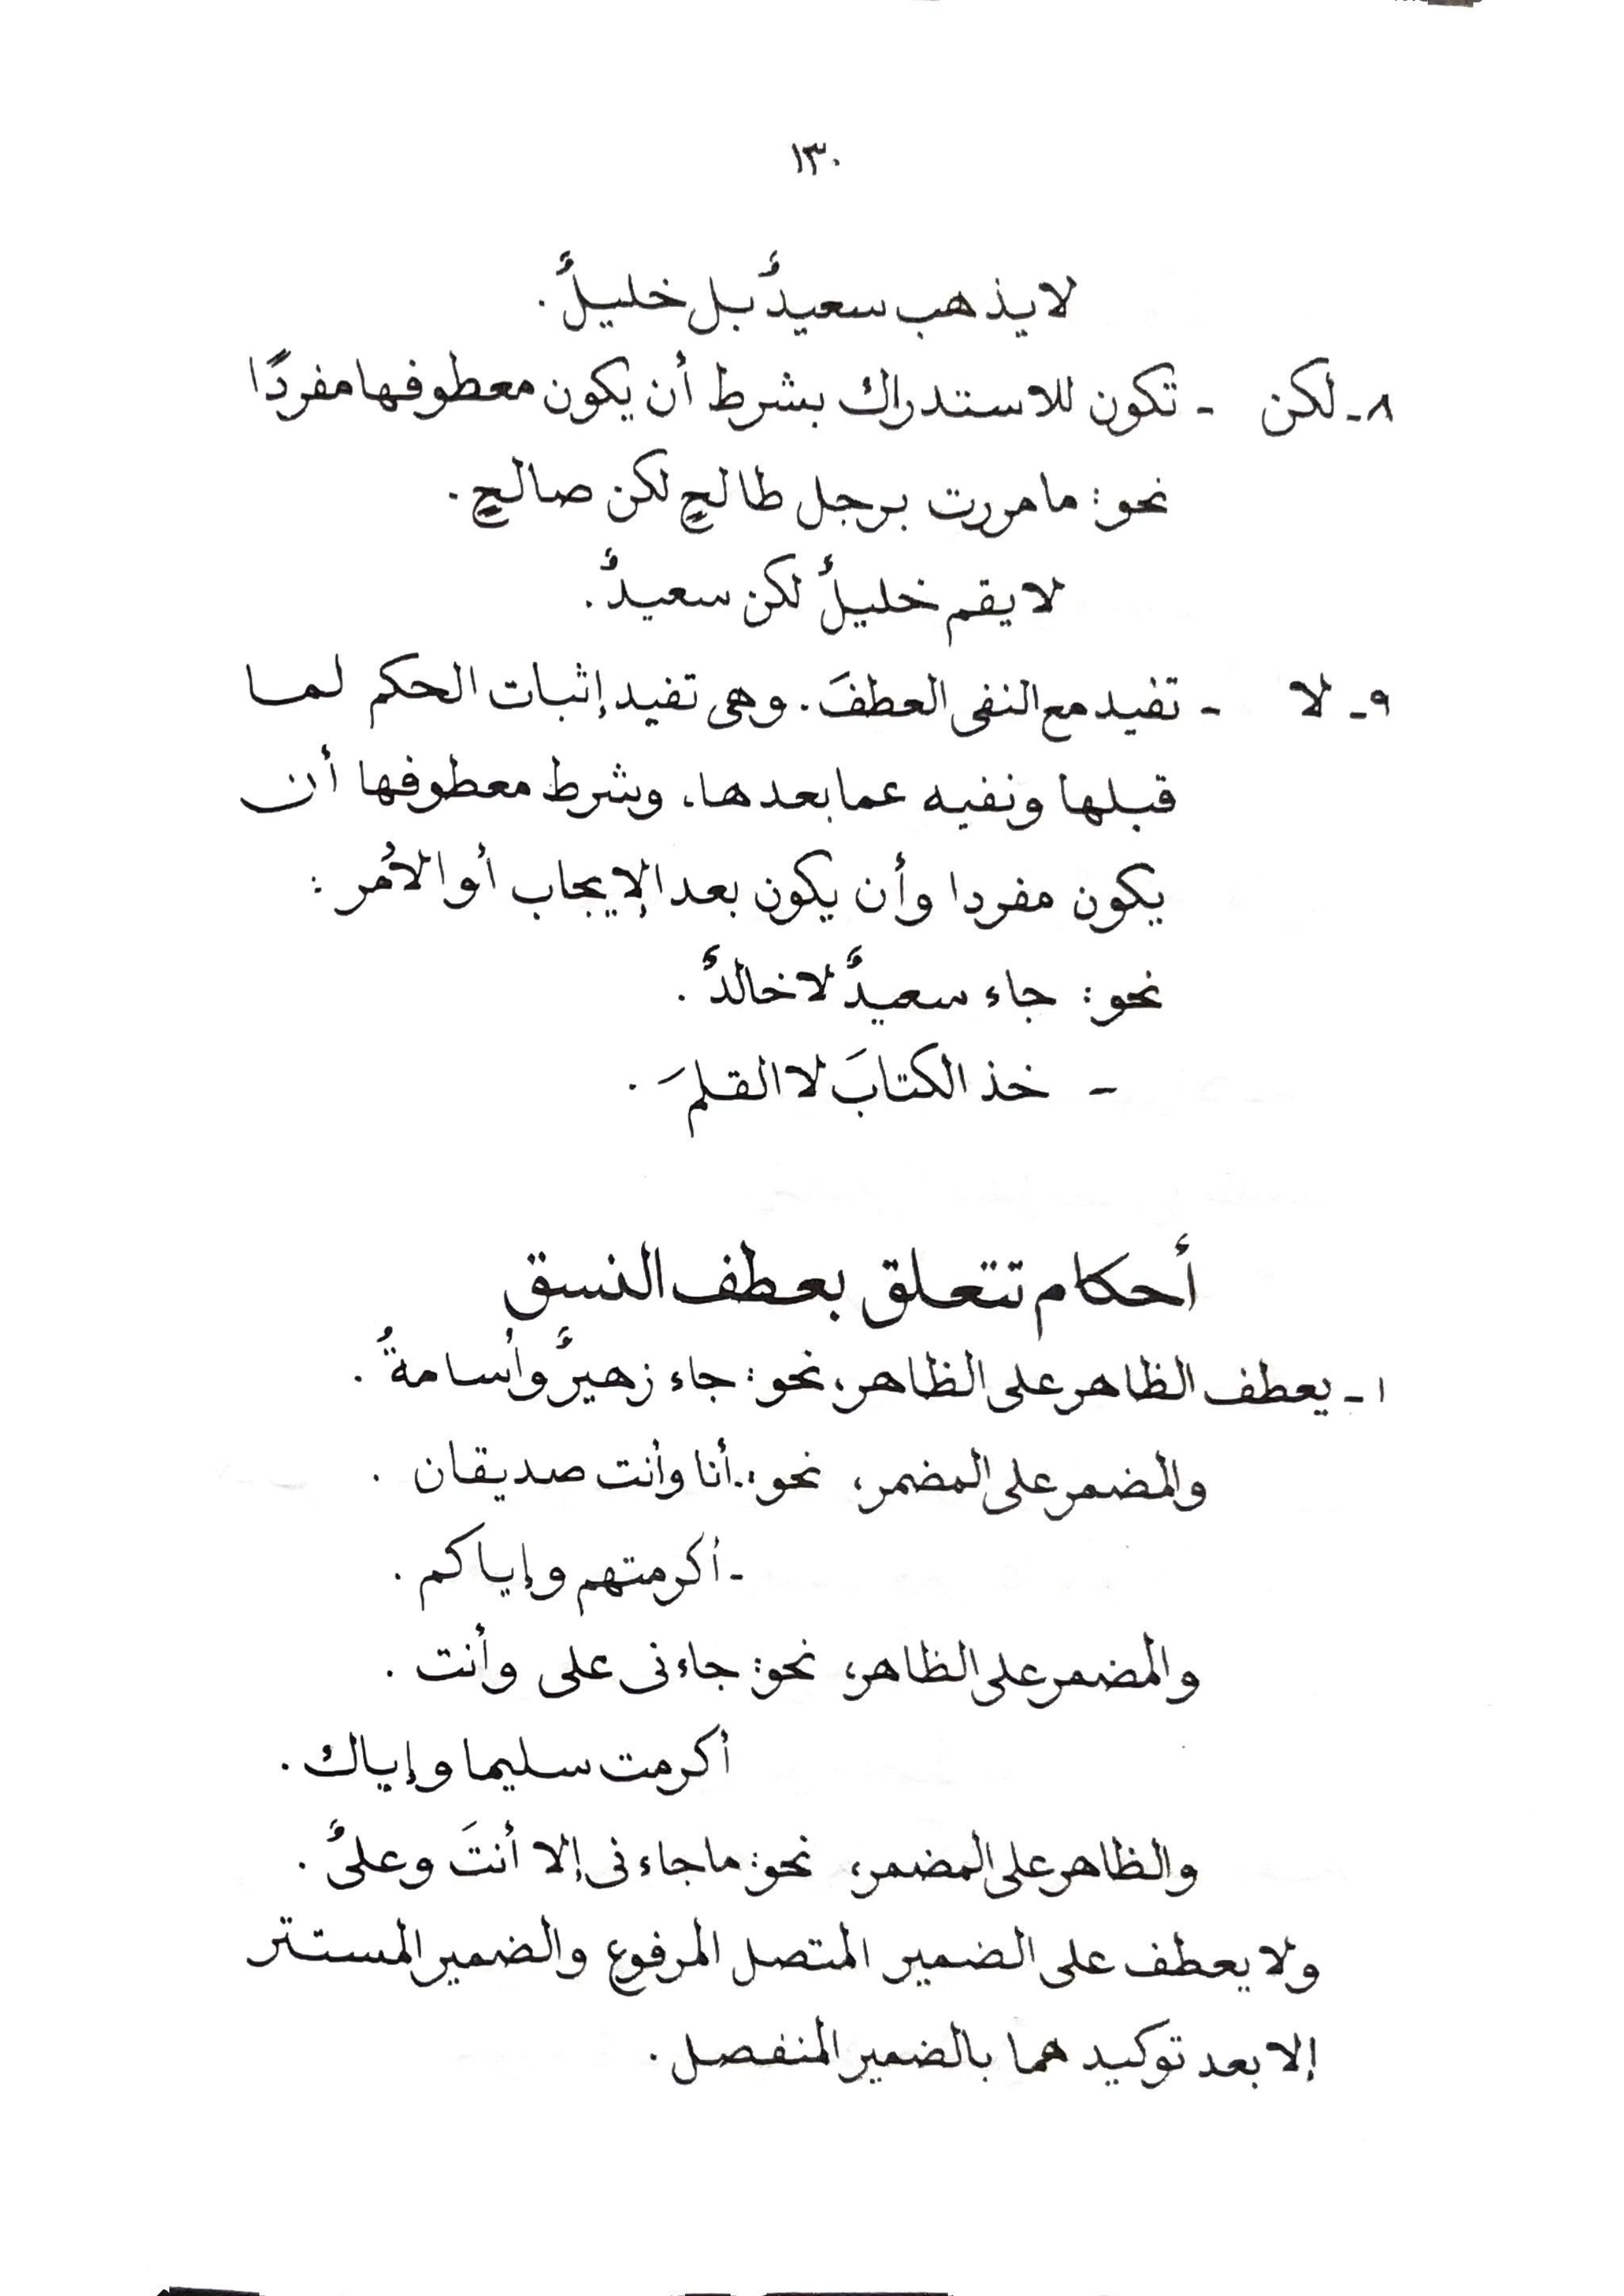 ١٣٠
لا يذهب سعيدٌ بل خليلٌ .
٨ - لكن - تكون للاستدراك بشرط أن يكون معطوفها مفردًا
نحو: ما مررت برجل طالحٍ لكن صالحٍ .
لا يقم خليلٌ لكن سعيدٌ .
٩ - لا - تفيد مع النفى العطفَ . وهى تفيد إثبات الحكم لما
قبلها ونفيه عما بعدها، وشرط معطوفها أن
يكون مفردا وأن يكون بعد الإيجاب أو الأمر :
نحو: جاء سعيدٌ لا خالدٌ .
- خذ الكتابَ لا القلمَ .
أحكام تتعلق بعطف النسق
١ - يعطف الظاهر على الظاهر، نحو: جاء زهيرٌ وأسامةُ .
والمضمر على المضمر، نحو: - أنا وأنت صديقان .
- أكرمتهم وإياكم .
والمضمر على الظاهر، نحو: جاءنى على وأنت .
أكرمت سليما وإياك .
والظاهر على المضمر، نحو: ما جاءنى إلا أنتَ وعلىٌ .
ولا يعطف على الضمير المتصل المرفوع والضمير المستتر
إلا بعد توكيدهما بالضمير المنفصل .